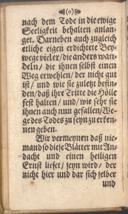 nach dem Tode in die ewige
Seeligkeit behalten anlan-
get. Darneben auch zugleich
etliche eigen erdichtete Bey-
wege wieder / die anders wan-
deln / die ihnen selbst einen
Weg erwehlen / der nicht gut
ist / und wie sie zuletzt befin-
den / daß ihre Tritte die Hölle
fest halten / und / wie sehr sie
ihnen auch nun gefallen / We-
ge des Todes zu seyn zu erken-
nen geben.
Wir vermeynen daß nie-
mand so diese Blätter mit An-
dacht und einen heiligen
Ernst lieset / seyn wird / der
nicht hier und dar sich selber
und